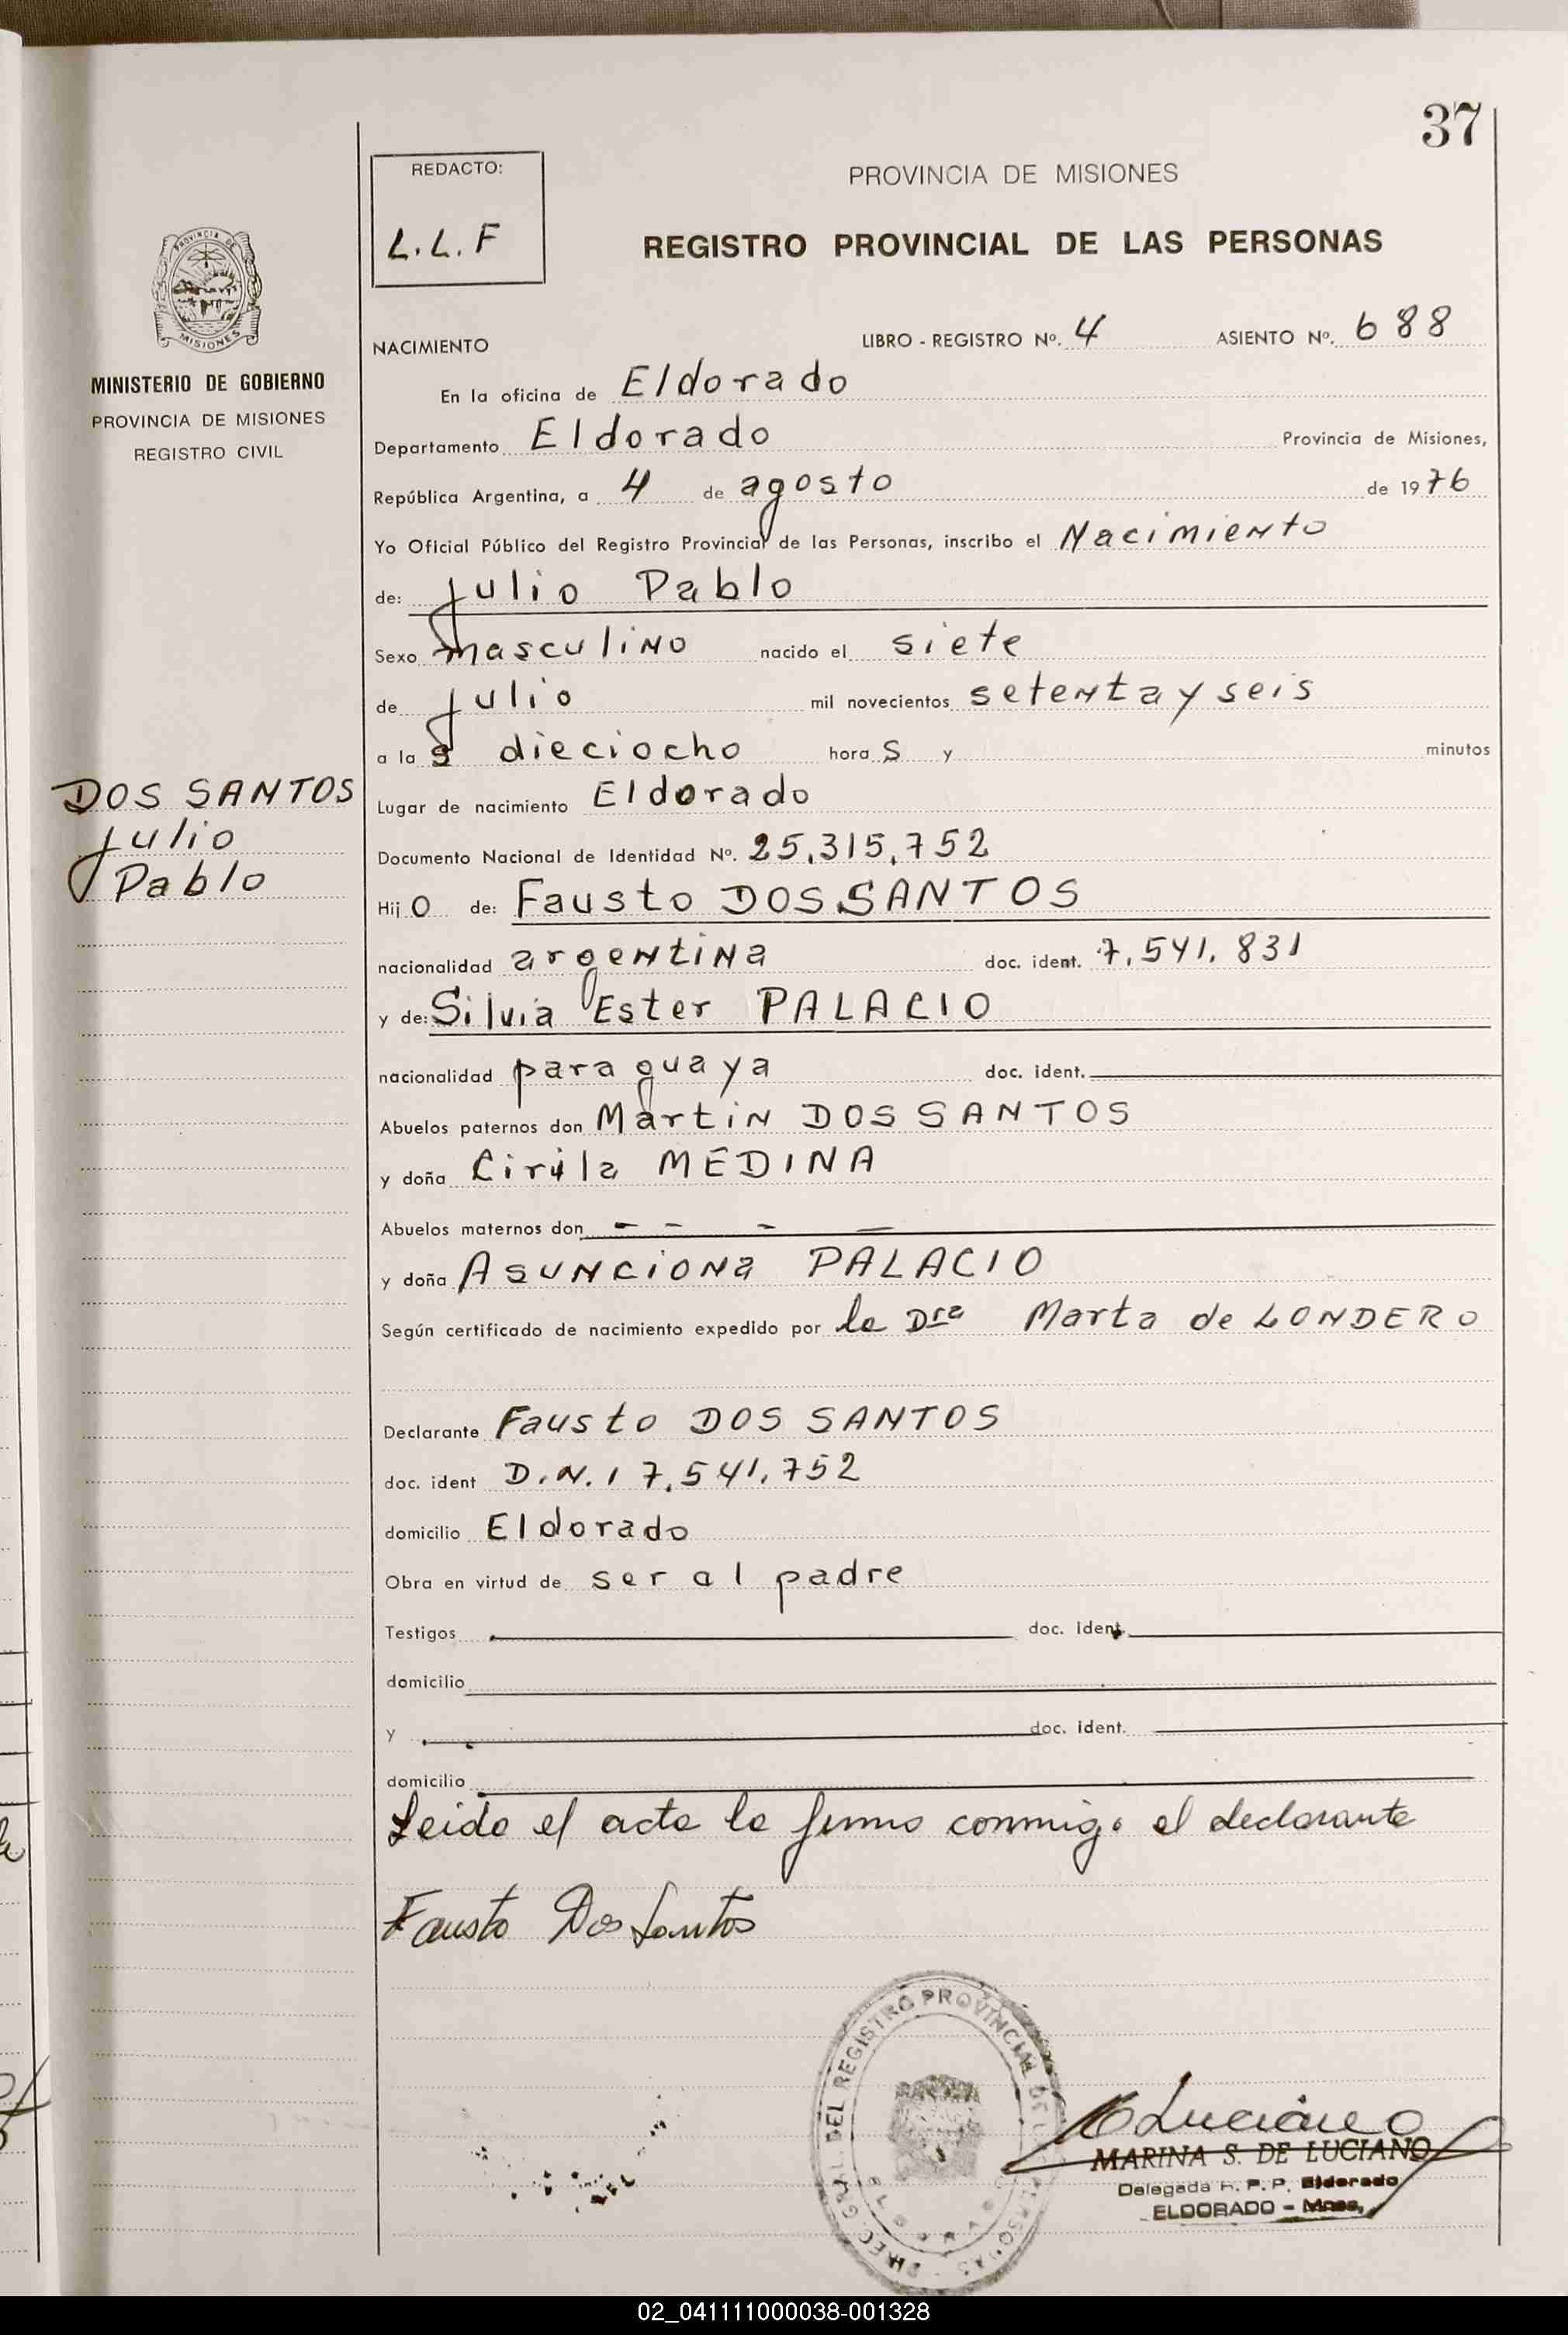 37
REDACTO:
L.L.F
PROVINCIA DE MISIONES
REGISTRO PROVINCIAL DE LAS PERSONAS
PROVINCIA DE
MISIONES
MINISTERIO DE GOBIERNO
PROVINCIA DE MISIONES
REGISTRO CIVIL
NACIMIENTO LIBRO - REGISTRO Nº. 4 ASIENTO Nº. 688
En la oficina de Eldorado
Departamento Eldorado Provincia de Misiones,
República Argentina, a 4 de agosto de 1976
Yo Oficial Público del Registro Provincial de las Personas, inscribo el Nacimiento
de: Julio Pablo
Sexo masculino nacido el siete
de julio mil novecientos setenta y seis
a las dieciocho horas y minutos
DOS SANTOS
Julio
Pablo
Lugar de nacimiento Eldorado
Documento Nacional de Identidad Nº. 25.315.752
Hijo de: Fausto DOS SANTOS
nacionalidad argentina doc. ident. 7.541.831
y de: Silvia Ester PALACIO
nacionalidad paraguaya doc. ident.
Abuelos paternos don Martin DOS SANTOS
y doña Cirila MEDINA
Abuelos maternos don - - - -
y doña Asunciona PALACIO
Según certificado de nacimiento expedido por la Dra Marta de LONDERO
Declarante Fausto DOS SANTOS
doc. ident D.N.I 7.541.752
domicilio Eldorado
Obra en virtud de ser al padre
Testigos doc. ident.
domicilio
y doc. ident.
domicilio
Leida el acta la firma conmigo el declarante
Fausto Dos Santos
DIREC. GRAL. DEL REGISTRO PROVINCIAL DE LAS PERSONAS
ELDORADO
Luciano
MARINA S. DE LUCIANO
Delegada R. P. P. Eldorado
ELDORADO - Mnes.
02_041111000038-001328